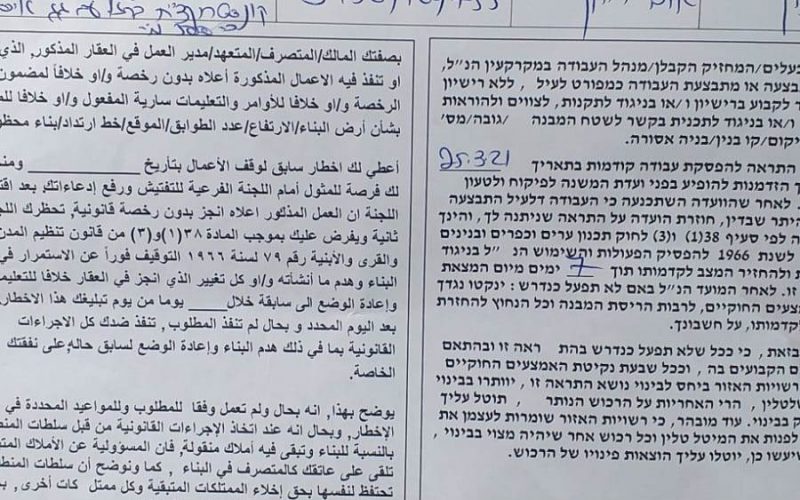 קונסטרוקציית ברזל עם גג איס
בעלים/המחזיק הקבלן/מנהל העבודה במקרקעין הנ"ל,
בצעה או מתבצעת העבודה כמפורט לעיל , ללא רישיון
ד לקבוע ברישיון ו/או בניגוד לתקנות, לצווים ולהוראות
ו/או בניגוד לתכנית בקשר לשטח המבנה /גובה/מס'
יקום/קו בנין/בניה אסורה.
התראה להפסקת עבודה קודמות בתאריך 25.3.21
ך הזדמנות להופיע בפני ועדת המשנה לפיקוח ולטעון
. לאחר שהוועדה השתכנעה כי העבודה דלעיל התבצעה
היתר שבדין, חוזרת הועדה על התראה שניתנה לך, והינך
ה לפי סעיף 38(1) ו(3) לחוק תכנון ערים וכפרים ובנינים
לשנת 1966 להפסיק הפעולות והשימוש הנ "ל בניגוד
ולהחזיר המצב לקדמותו תוך 7 ימים מיום המצאת
זו. לאחר המועד הנ"ל באם לא תפעל כנדרש : ינקטו נגדך
מצעים החוקיים, לרבות הריסת המבנה וכל הנחוץ להחזרת
קדמותו, על חשבונך.
בזאת , כי ככל שלא תפעל כנדרש בהת ראה זו ובהתאם
ם הקבועים בה , וככל שבעת נקיטת האמצעים החוקיים
רשויות האזור ביחס לבינוי נושא התראה זו , יוותרו בבינוי
טלטלין, הרי האחריות על הרכוש הנותר , תוטל עליך
ק בבינוי. עוד מובהר, כי רשויות האזור שומרות לעצמן את
לפנות את המיטל טלין וכל רכוש אחר שיהיה מצוי בבינוי ,
שיעשו כן, יוטלו עליך הוצאות פינויו של הרכוש.
بصفتك المالك/المتصرف/المتعهد/مدير العمل في العقار المذكور, الذي
او تنفذ فيه الاعمال المذكورة أعلاه بدون رخصة و/او خلافاً لمضمون
الرخصة و/او خلافاً للأوامر والتعليمات سارية المفعول و/او خلافا للم
بشأن أرض البناء/الارتفاع/عدد الطوابق/الموقع/خط ارتداد/بناء محظو
أعطي لك اخطار سابق لوقف الأعمال بتأريخ __________ ومنه
لك فرصة للمثول أمام اللجنة الفرعية للتفتيش ورفع إدعاءاتك. بعد اقت
اللجنة ان العمل المذكور اعلاه انجز بدون رخصة قانونية, تحظرك اللج
ثانية ويفرض عليك بموجب المادة ٣٨(١)و(٣) من قانون تنظيم المدن
والقرى والأبنية رقم ٧٩ لسنة ١٩٦٦ التوقيف فوراً عن الاستمرار في
البناء وهدم ما أنشأته و/او كل تغيير الذي انجز في العقار خلافا للتعليم
وإعادة الوضع الى سابقة خلال____ يوما من يوم تبليغك هذا الاخطار.
بعد اليوم المحدد و بحال لم تنفذ المطلوب , تنفذ ضدك كل الاجراءات
القانونية بما في ذلك هدم البناء وإعادة الوضع لسابق حاله, على نفقتك
الخاصة.
يوضح بهذا, انه بحال ولم تعمل وفقا للمطلوب وللمواعيد المحددة في
الإخطار, وبحال انه عند اتخاذ الإجراءات القانونية من قبل سلطات المنط
بالنسبة للبناء وتبقى فيه أملاك منقولة, فان المسؤولية عن الأملاك المتب
تلقى على عاتقك كالمتصرف في البناء , كما ونوضح أن سلطات المنط
تحتفظ لنفسها بحق إخلاء الممتلكات المتبقية وكل ممتل كات أخرى , بح